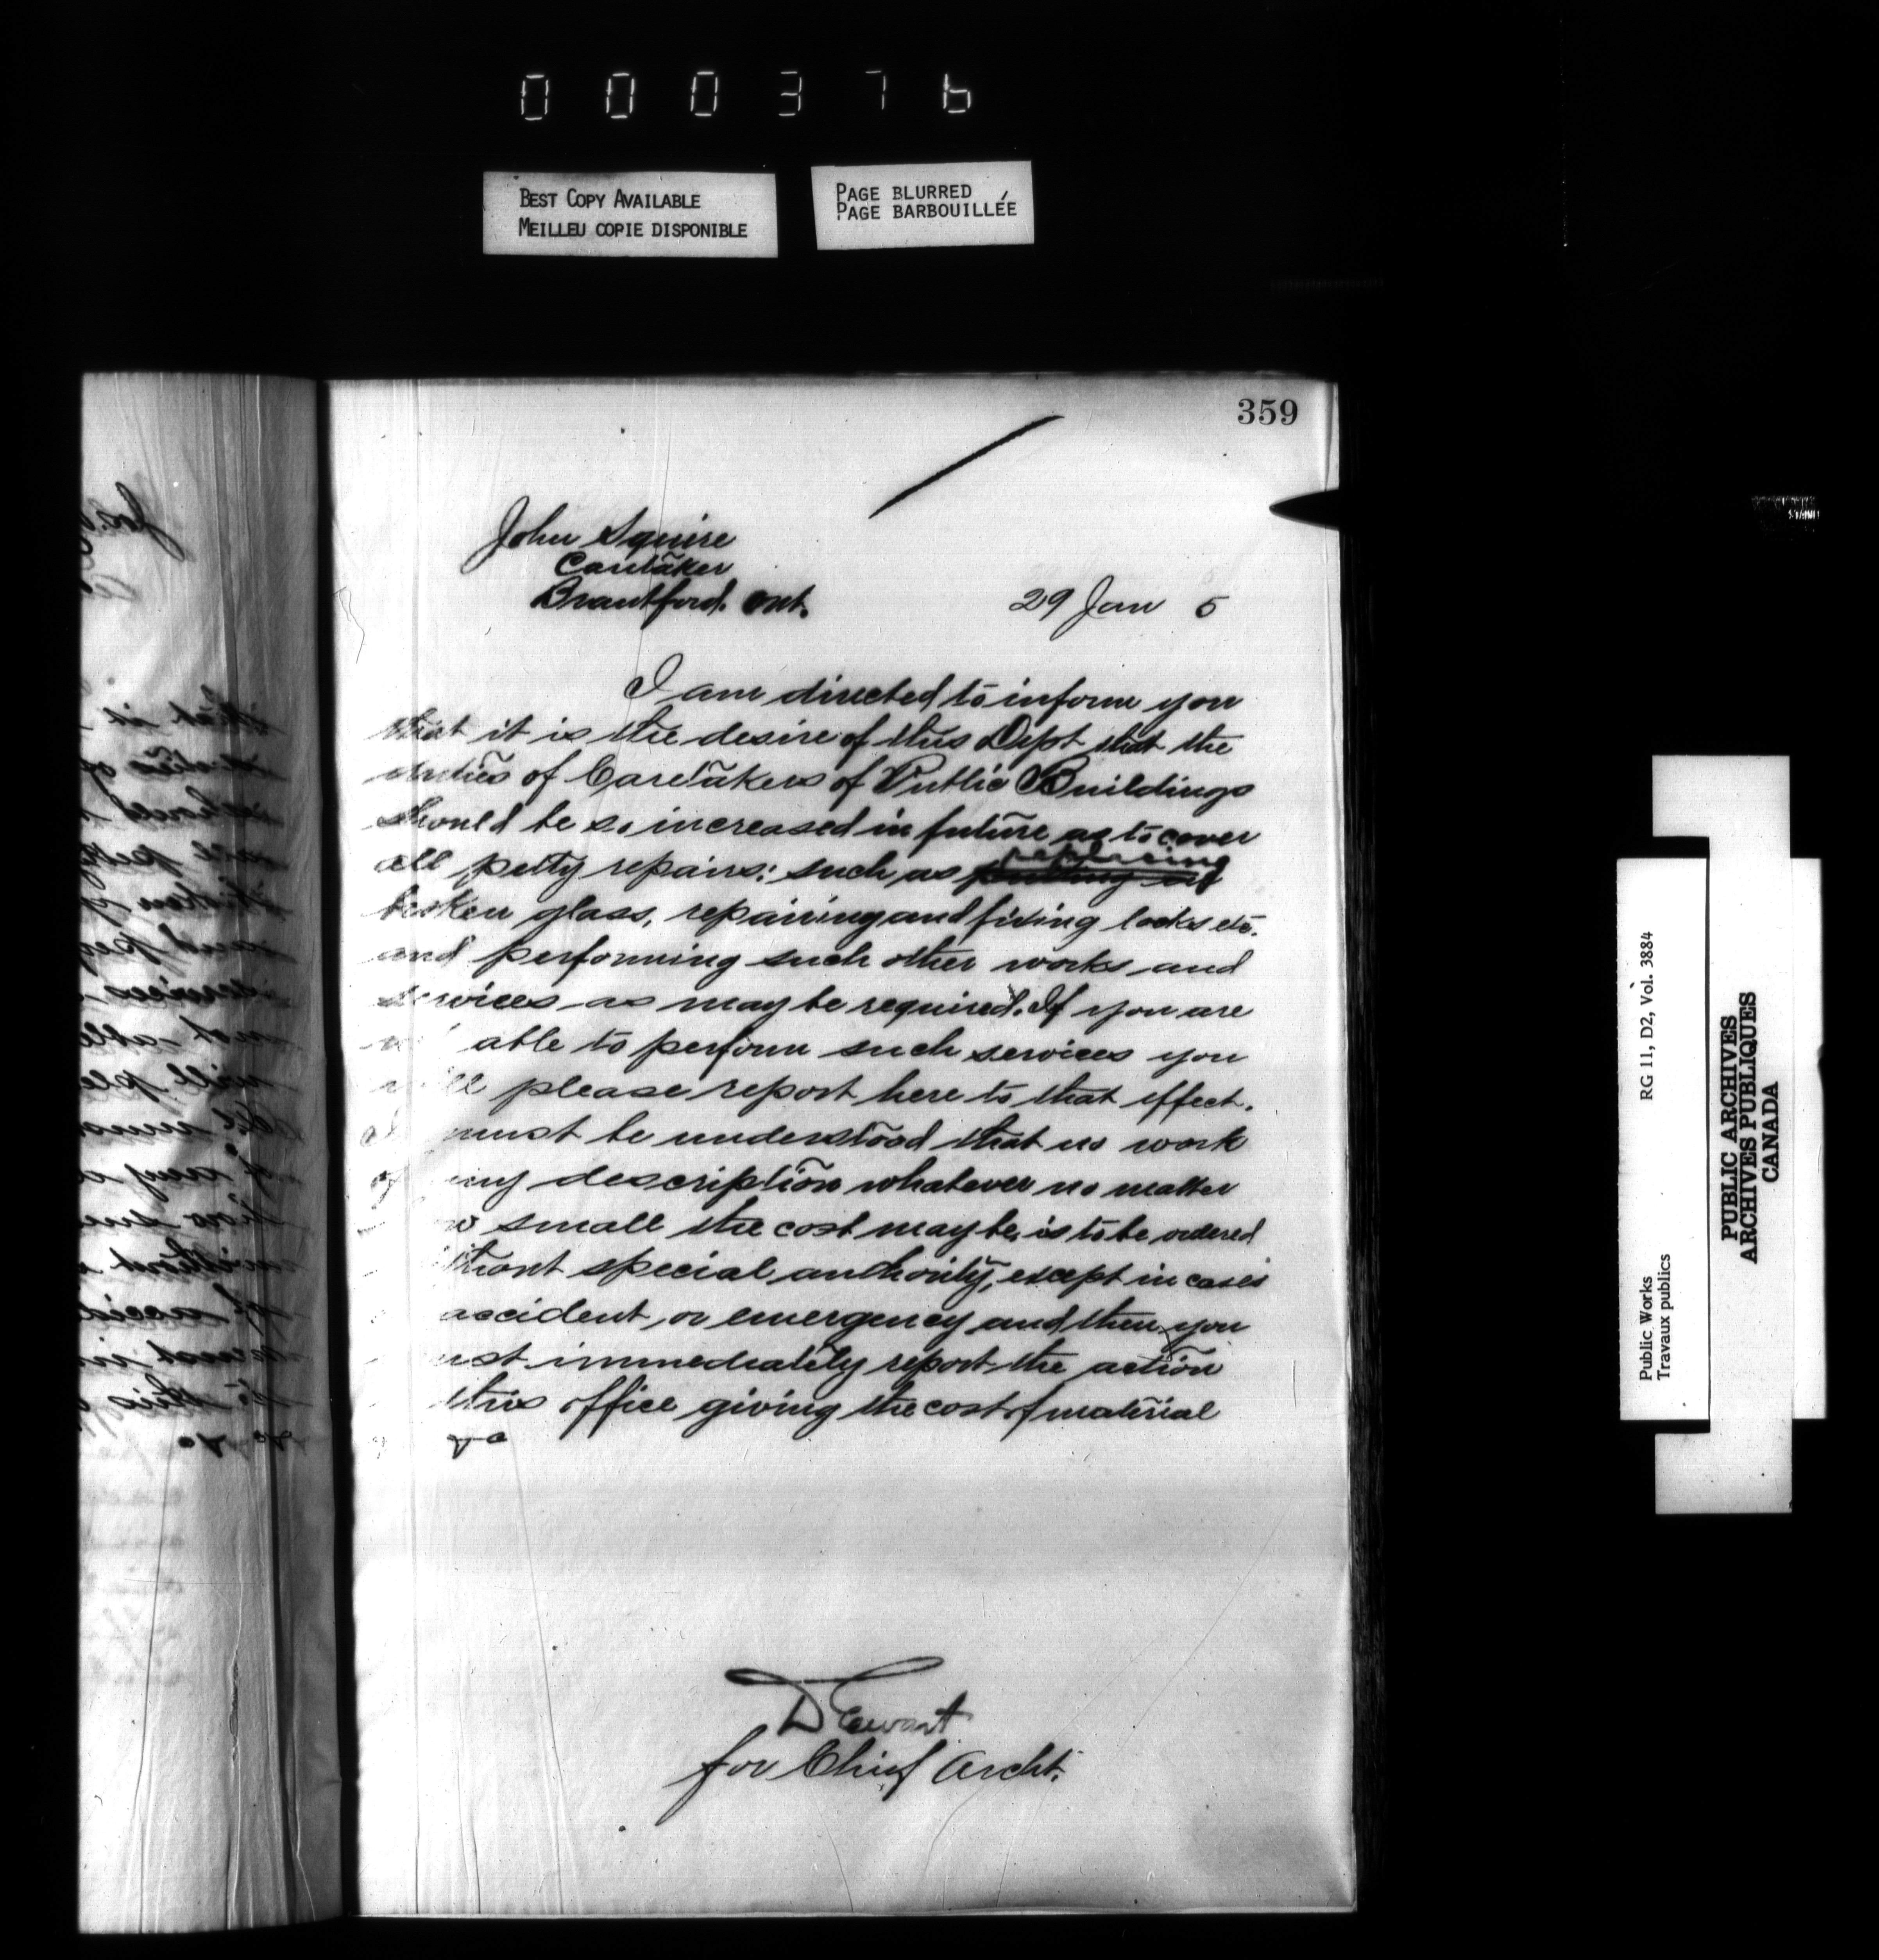 000376
BEST COPY AVAILABLE
MEILLEU COPIE DISPONIBLE
PAGE BLURRED
PAGE BARBOUILLÉE
359
John Squire
Caretaker
Brantford. Ont.
29 Jan 5
I am directed to inform you
that it is the desire of this Dept that the
duties of Caretakers of Public Buildings
should be so increased in future as to cover
all petty repairs: such as replacing
broken glass, repairing and fixing locks etc.
and performing such other works and
services as may be required. If you are
able to perform such services you
will please report here to that effect.
must be understood that no work
of any description whatever no matter
small the cost may be, is to be ordered
without special authority, except in cases
accident, or emergency and then you
must immediately report the action
this office giving the cost of material
&c
D Ewart
for Chief Archt.
RG 11, D2, Vol. 3884
Public Works
Travaux publics
PUBLIC ARCHIVES
ARCHIVES PUBLIQUES
CANADA